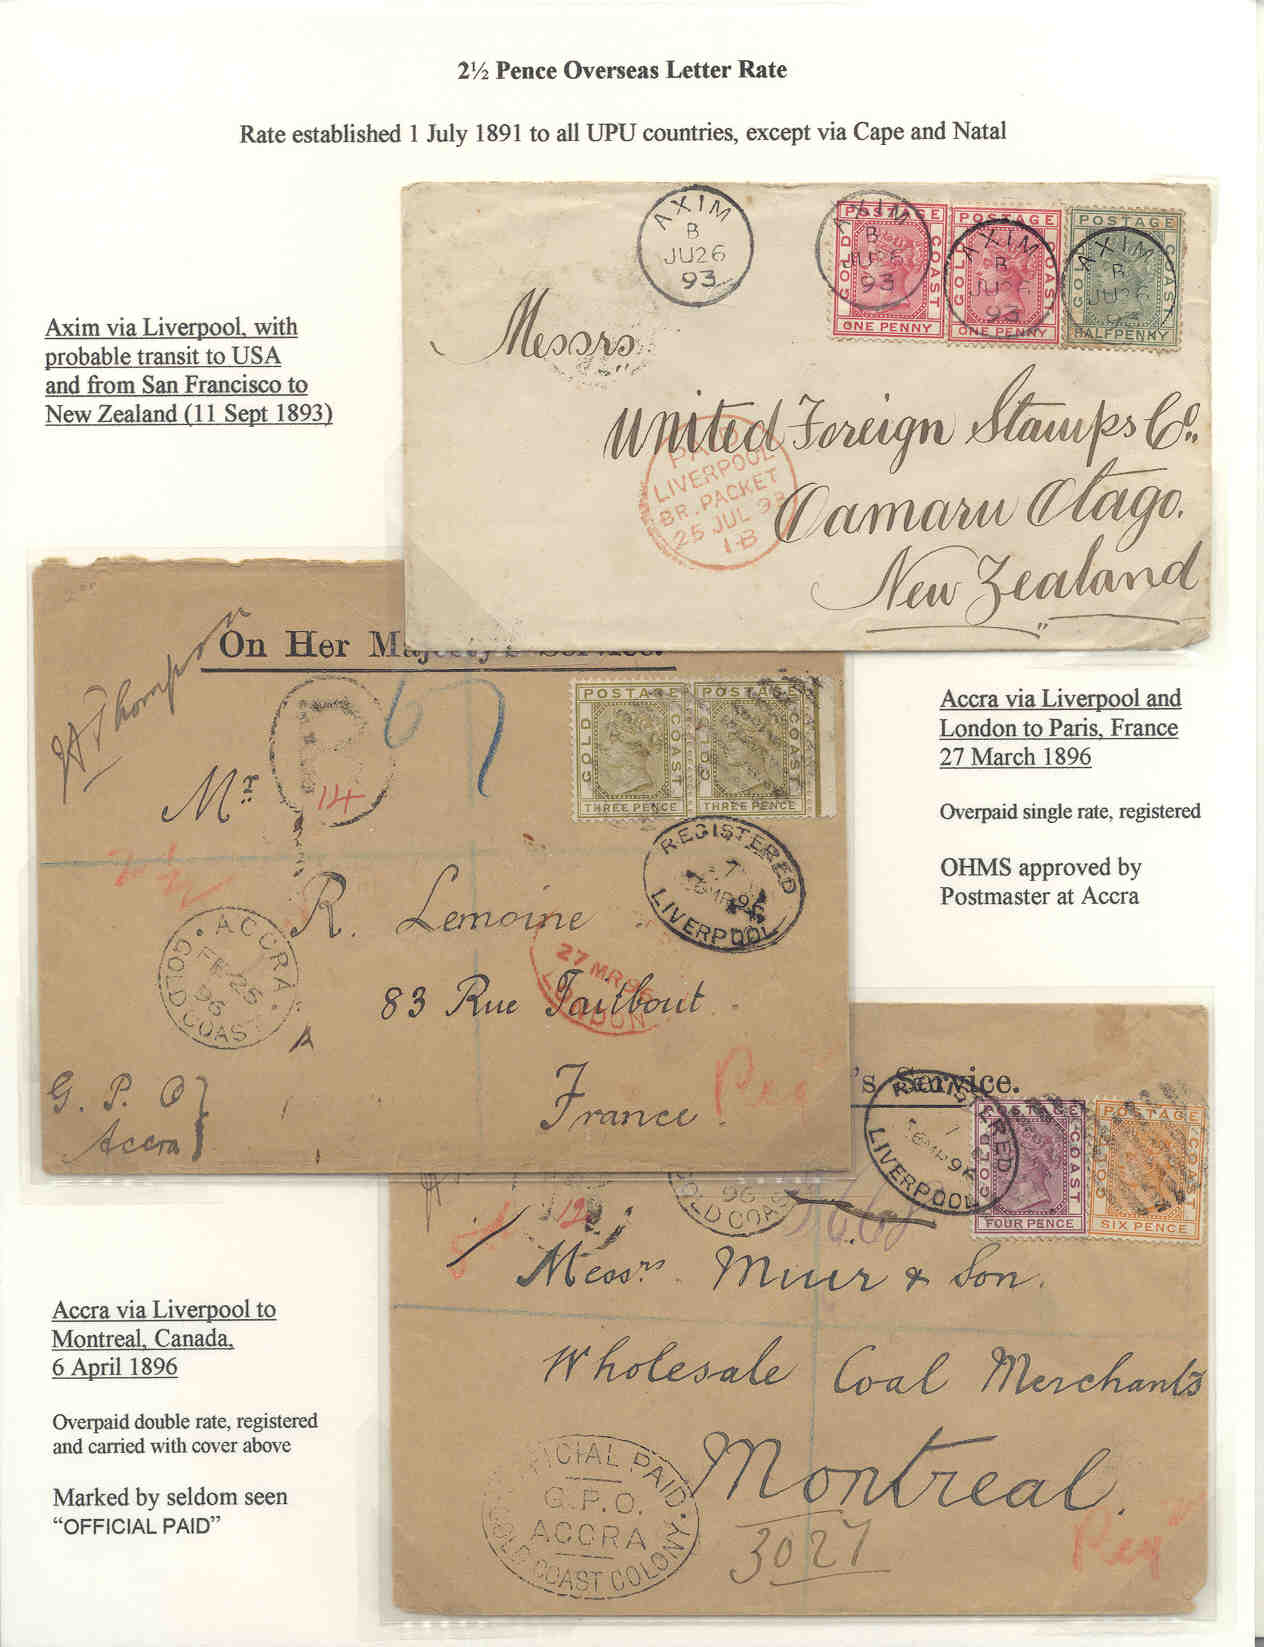 2½ Pence Overseas Letter Rate
Rate established 1 July 1891 to all UPU countries, except via Cape and Natal
AXIM
B
JU26
93
AXIM
B
JU26
93
AXIM
B
93
AXIM
B
JU26
93
POSTAGE
GOLD COAST
ONE PENNY
POSTAGE
GOLD COAST
ONE PENNY
POSTAGE
GOLD COAST
HALFPENNY
Axim via Liverpool, with
probable transit to USA
and from San Francisco to
New Zealand (11 Sept 1893)
Messrs
United Foreign Stamps Co.
Oamaru Otago.
New Zealand
PAID
LIVERPOOL
BR. PACKET
25 JUL 93
1-B
On Her Majesty's Service.
JA Thompson
67
14
POSTAGE
GOLD COAST
THREE PENCE
POSTAGE
GOLD COAST
THREE PENCE
Mr.
R. Lemoine
83 Rue Taitbout
France.
REGISTERED
7
MR 96
LIVERPOOL
27 MR 96
LONDON
ACCRA
FE 25
96
GOLD COAST
A
G. P. O
Accra
Reg
Accra via Liverpool and
London to Paris, France
27 March 1896
Overpaid single rate, registered
OHMS approved by
Postmaster at Accra
's Service.
REGISTERED
7
MR 96
LIVERPOOL
POSTAGE
GOLD COAST
FOUR PENCE
POSTAGE
GOLD COAST
SIX PENCE
12
96
GOLD COAS
Messrs. Muir & Son.
Wholesale Coal Merchants
Montreal.
3027
Reg
OFFICIAL PAID
G.P.O.
ACCRA
GOLD COAST COLONY
Accra via Liverpool to
Montreal, Canada,
6 April 1896
Overpaid double rate, registered
and carried with cover above
Marked by seldom seen
“OFFICIAL PAID”